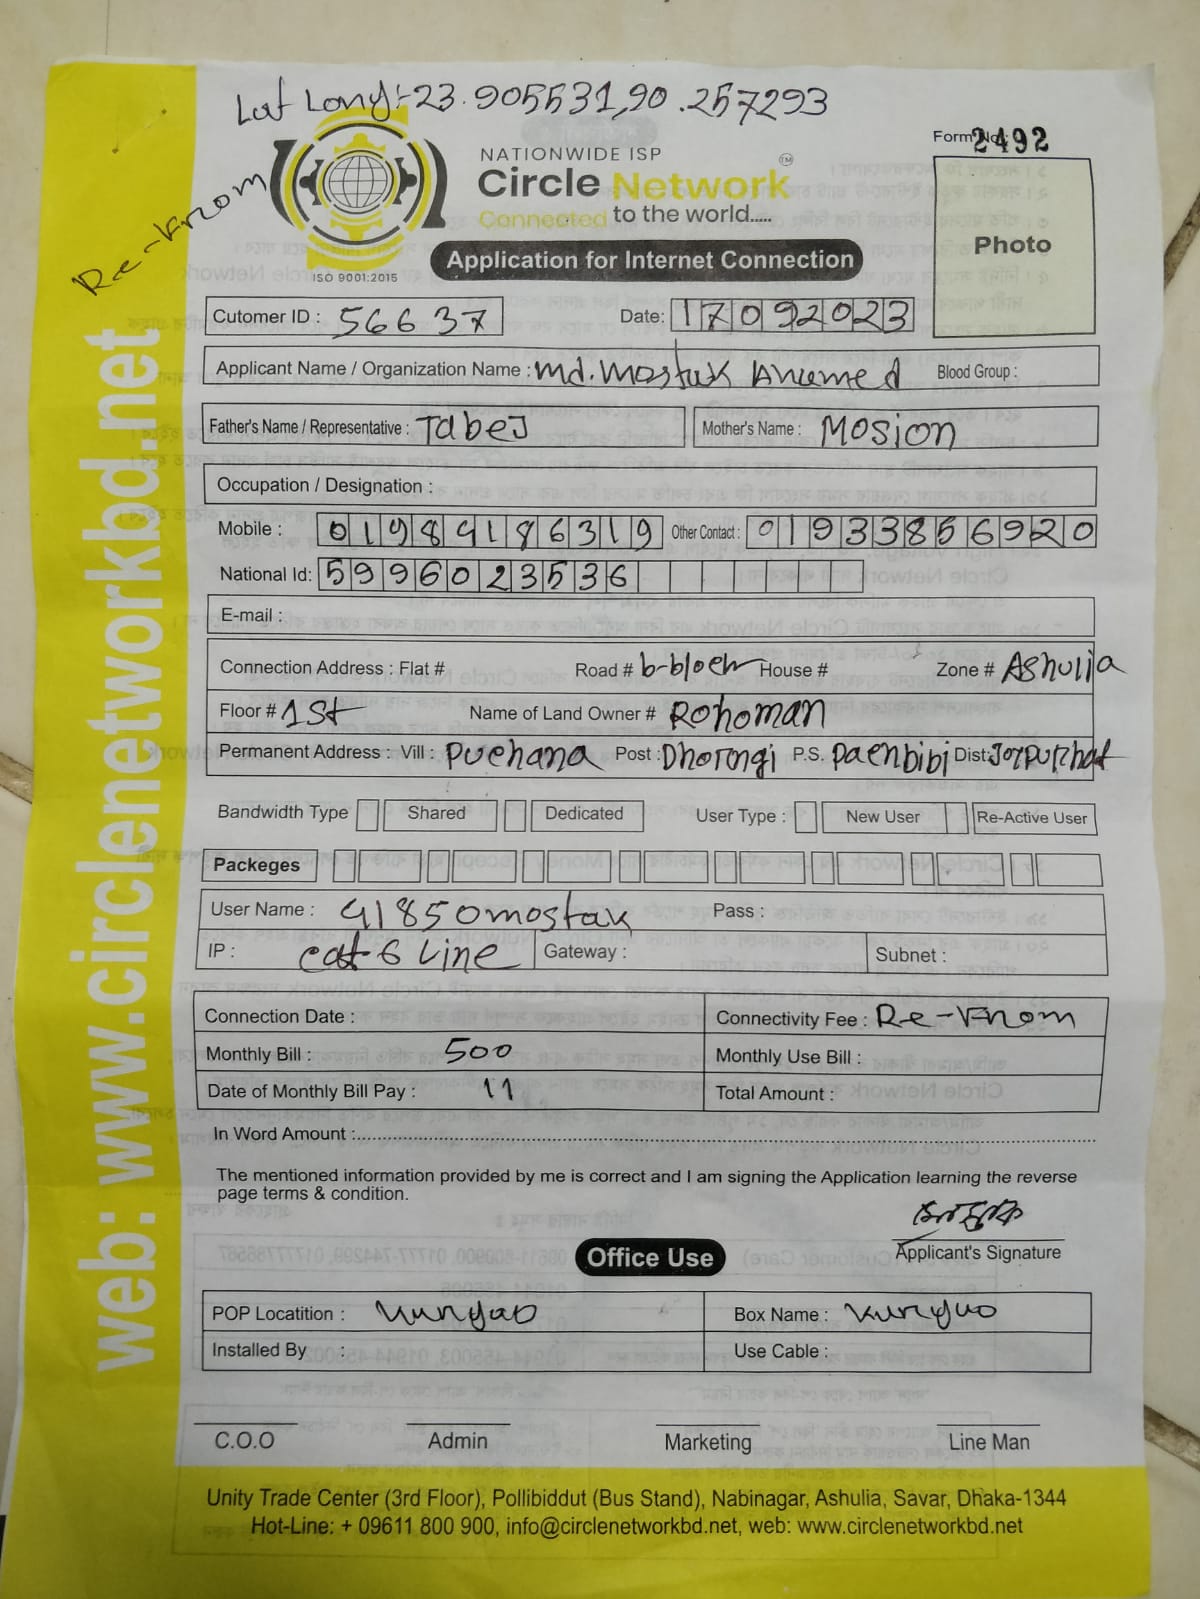 Lat Long:-23.905531,90.257293
Re-Fnom
Form No: 2492
NATIONWIDE ISP
TM
Circle Network
Connected to the world.....
ISO 9001:2015
Photo
Application for Internet Connection
Cutomer ID : 56637
Date: 17092023
Applicant Name / Organization Name : Md. Mostak Ahemed Blood Group :
Father's Name / Representative : Tabej
Mother's Name : Mosion
Occupation / Designation :
Mobile : 01989186319 Other Contact : 01933856920
National Id: 5996023536
E-mail :
Connection Address : Flat # Road # b-bloch House # Zone # Ashulia
Floor # 1st Name of Land Owner # Rohoman
Permanent Address : Vill : Puehana Post : Dhorongi P.S. Paenbibi Dist: Joypurhat
Bandwidth Type Shared Dedicated User Type : New User Re-Active User
Packeges
User Name : 41850mostak Pass :
IP : cat-6 Line Gateway : Subnet :
Connection Date : Connectivity Fee : Re-Fnom
Monthly Bill : 500 Monthly Use Bill :
Date of Monthly Bill Pay : 11 Total Amount :
In Word Amount :
The mentioned information provided by me is correct and I am signing the Application learning the reverse
page terms & condition.
মোস্তাক
Applicant's Signature
Office Use
POP Locatition : Box Name :
Installed By : Use Cable :
C.O.O Admin Marketing Line Man
Unity Trade Center (3rd Floor), Pollibiddut (Bus Stand), Nabinagar, Ashulia, Savar, Dhaka-1344
Hot-Line: + 09611 800 900, info@circlenetworkbd.net, web: www.circlenetworkbd.net
web: www.circlenetworkbd.net